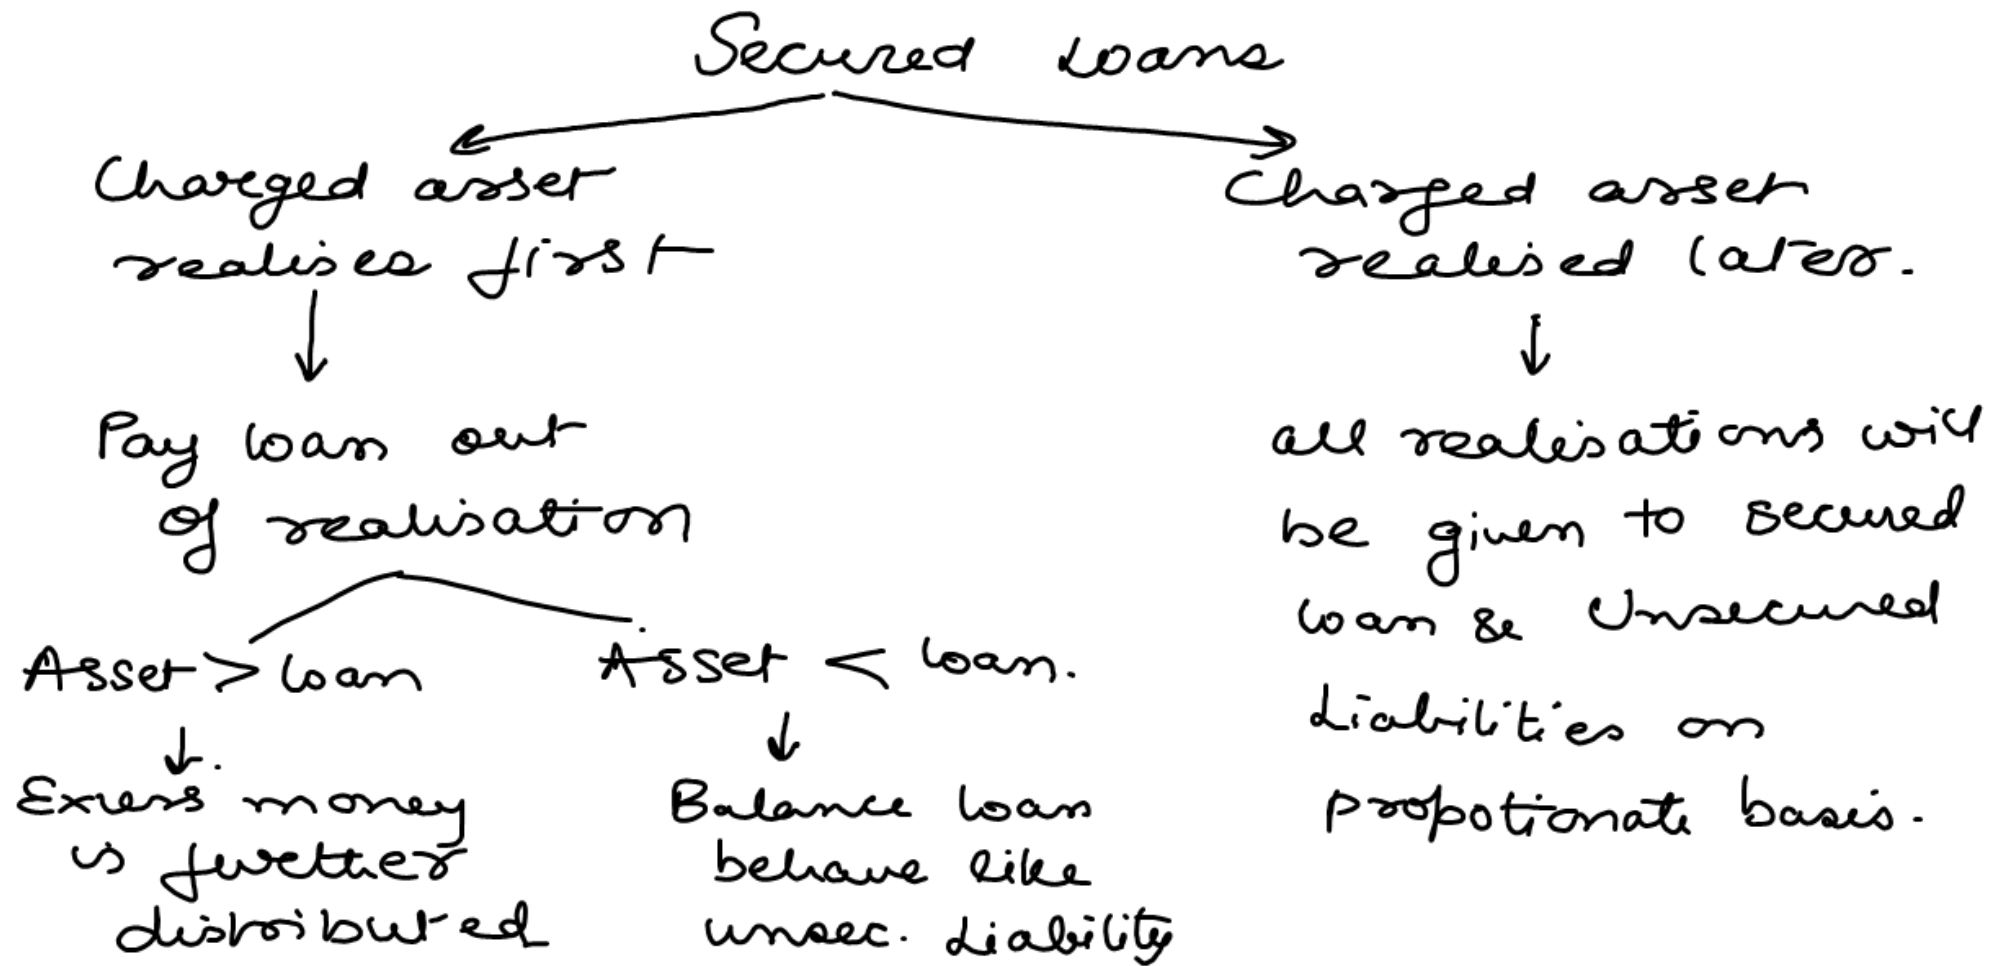 Secured Loans
Charged asset
realises first
Pay loan out
of realisation
Asset > loan
Excess money
is further
distributed
Asset < loan.
Balance loan
behave like
unsec. Liability
Charged asset
realised later.
all realisations will
be given to secured
loan & Unsecured
Liabilities on
propotionate basis.